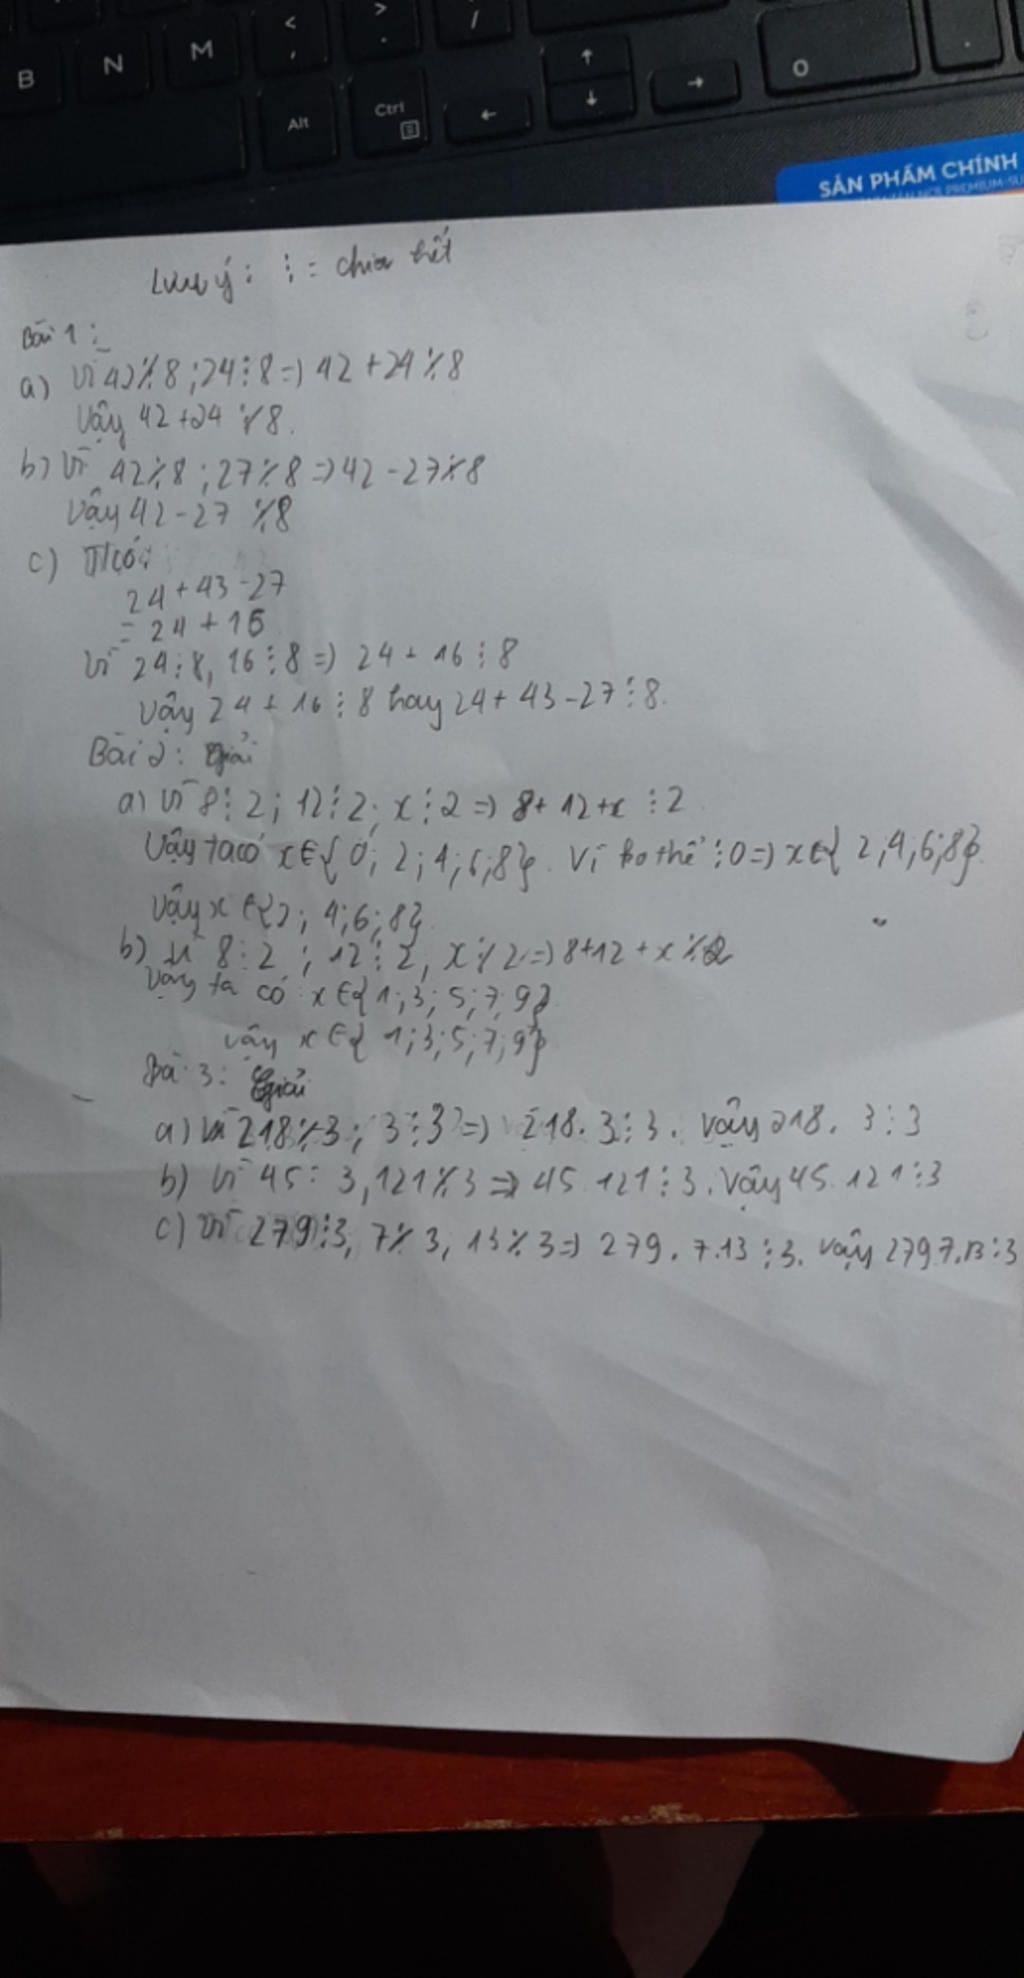 B N M < , > . / ↑ ↓ ← → 0 .
Alt Ctrl
SẢN PHẨM CHÍNH
Lưu ý: ⋮ = chia hết
Bài 1:
a) Vì 42 ⋮̸ 8 ; 24 ⋮ 8 => 42 + 24 ⋮̸ 8
Vậy 42 + 24 ⋮̸ 8.
b) Vì 42 ⋮̸ 8 ; 27 ⋮̸ 8 => 42 - 27 ⋮̸ 8
Vậy 42 - 27 ⋮̸ 8
c) Ta có:
24 + 43 - 27
= 24 + 16
Vì 24 ⋮ 8, 16 ⋮ 8 => 24 + 16 ⋮ 8
Vậy 24 + 16 ⋮ 8 hay 24 + 43 - 27 ⋮ 8.
Bài 2: Giải
a) Vì 8 ⋮ 2 ; 12 ⋮ 2 ; x ⋮ 2 => 8 + 12 + x ⋮ 2
Vậy ta có x ∈ { 0; 2; 4; 6; 8}. Vì ko thể ⋮ 0 => x ∈ { 2;4;6;8}.
Vậy x ∈ {2; 4; 6; 8}.
b) Vì 8 ⋮ 2 ; 12 ⋮ 2, x ⋮̸ 2 => 8 + 12 + x ⋮̸ 2
Vậy ta có x ∈ {1; 3; 5; 7; 9}.
Vậy x ∈ { 1; 3; 5; 7; 9}
Bài 3: Giải
a) Vì 218 ⋮̸ 3 ; 3 ⋮ 3 => 218. 3 ⋮ 3. Vậy 218. 3 ⋮ 3
b) Vì 45 ⋮ 3, 121 ⋮̸ 3 => 45. 121 ⋮ 3. Vậy 45. 121 ⋮ 3
c) Vì 279 ⋮ 3, 7 ⋮̸ 3, 13 ⋮̸ 3 => 279. 7. 13 ⋮ 3. Vậy 279 7. 13 ⋮ 3